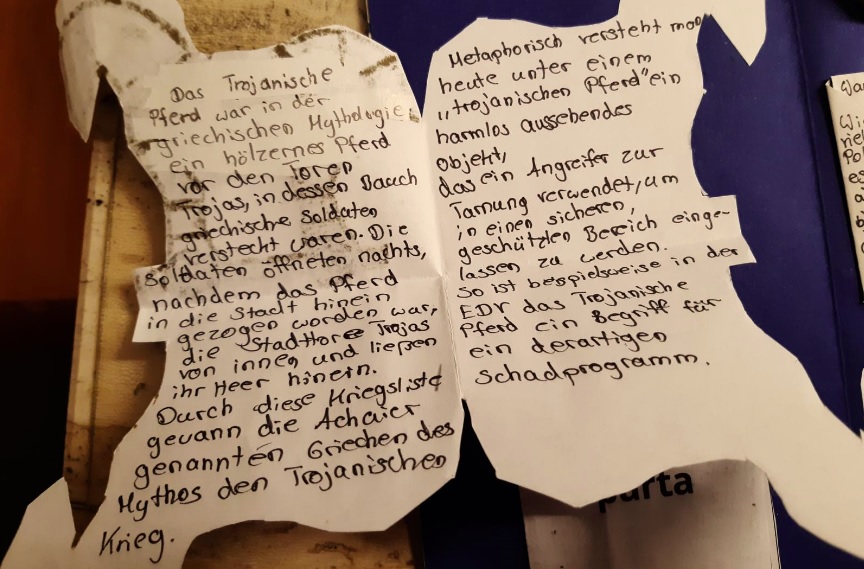 Das Trojanische
Pferd war in der
griechischen Mythologie
ein hölzernes Pferd
vor den Toren
Trojas, in dessen Bauch
griechische Soldaten
versteckt waren. Die
Soldaten öffneten nachts,
nachdem das Pferd
in die Stadt hinein
gezogen worden war,
die Stadttore Trojas
von innen und ließen
ihr Heer hinein.
Durch diese Kriegsliste
gewann die Achaier
genannten Griechen des
Mythos den Trojanischen
Krieg.
Metaphorisch versteht man
heute unter einem
„trojanischen Pferd" ein
harmlos aussehendes
Objekt,
das ein Angreifer zur
Tarnung verwendet, um
in einen sicheren,
geschützten Bereich einge-
lassen zu werden.
So ist beispielsweise in der
EDV das Trojanische
Pferd ein Begriff für
ein derartigen
Schadprogramm.
parta